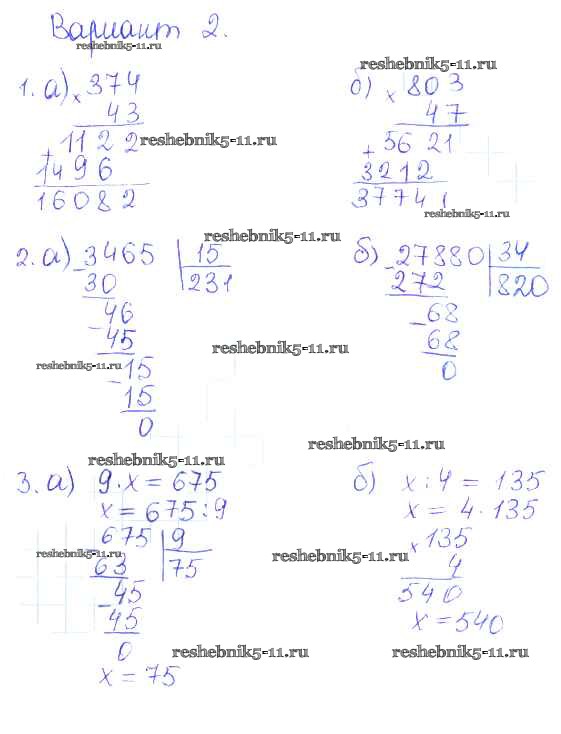 Вариант 2.
reshebnik5-11.ru
reshebnik5-11.ru
1. а) × 374
43
+ 1122 reshebnik5-11.ru
1496
16082
б) × 803
47
+ 5621
3212
37741
reshebnik5-11.ru
reshebnik5-11.ru
2. а) - 3465 | 15
30 | 231
- 46
45
reshebnik5-11.ru - 15
15
0
б) - 27880 | 34
272 | 820
- 68
68
0
reshebnik5-11.ru
reshebnik5-11.ru
reshebnik5-11.ru
3. а) 9 · x = 675
x = 675 : 9
675 | 9
reshebnik5-11.ru
63 | 75
- 45
45
0
x = 75
б) x : 4 = 135
x = 4 · 135
× 135
reshebnik5-11.ru
4
540
x = 540
reshebnik5-11.ru
reshebnik5-11.ru